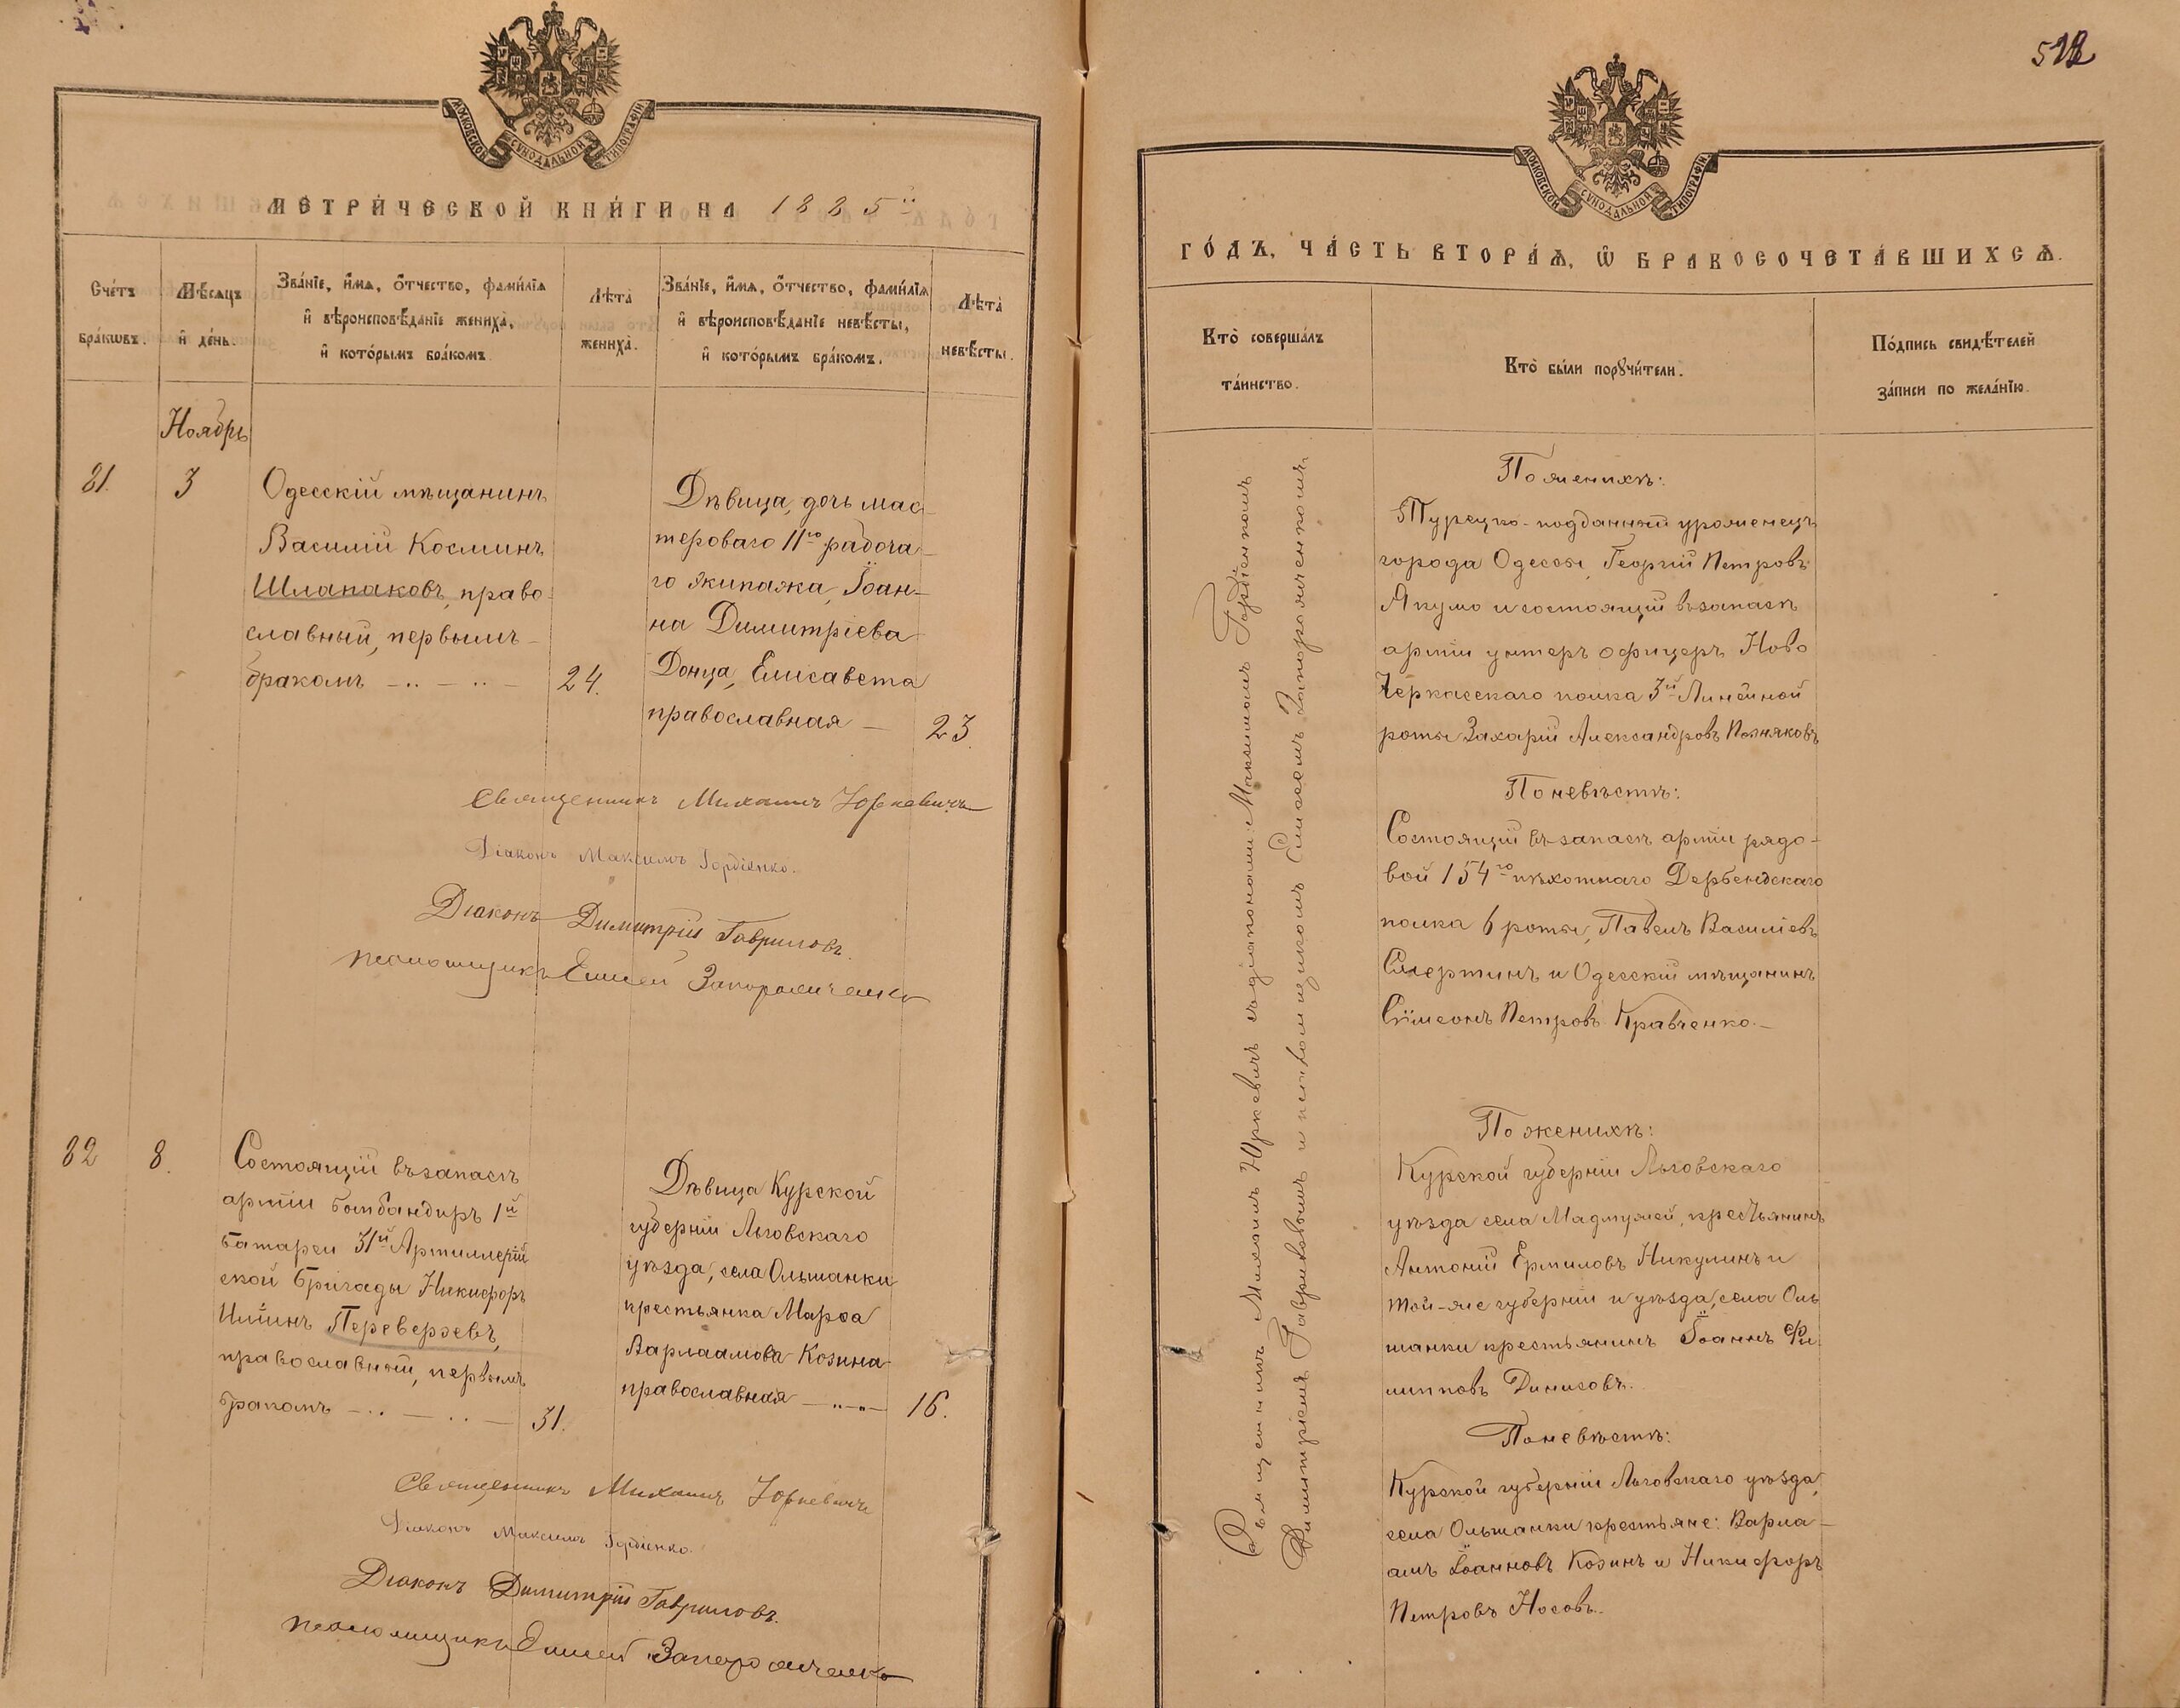 МОСКОВСКОЙ СУНОДАЛЬНОЙ ТИПОГРАФІИ
МЕТРИ́ЧЕСКОЙ КНИ́ГИ НА 1885й
Сче́тъ бра́кѡвъ.
Мѣ́сяцъ и҆ де́нь.
Зва́нїе, и҆́мѧ, ѻ҆́тчество, фами́лїѧ
и҆ вѣроисповѣ́данїе жениха̀,
и҆ кото́рымъ бра́комъ.
Лѣта̀
жениха̀.
Зва́нїе, и҆́мѧ, ѻ҆́тчество, фами́лїѧ
и҆ вѣроисповѣ́данїе невѣ́сты,
и҆ кото́рымъ бра́комъ.
Лѣта̀
невѣ́сты.
Ноябрь
81.
3
Одесскій мѣщанинъ
Василій Косминъ
Шлапаковъ, право-
славный, первымъ
бракомъ
24.
Дѣвица, дочь мас-
тероваго 11го рабоча-
го экипажа, Іоан-
на Димитріева
Донца, Елисавета
православная
23.
Священникъ Михаилъ Юркевичъ
Діаконъ Максимъ Гордіенко.
Діаконъ Димитрій Гавриловъ.
Псаломщикъ Елисей Запорожченко
82
8.
Состоящій въ запасѣ
арміи бомбандиръ 1й
батареи 31й Артиллерій
ской бригады Никифоръ
Ильинъ Переверзевъ,
православный, первымъ
бракомъ
31.
Дѣвица Курской
губерніи Льговскаго
уѣзда, села Ольшанки
крестьянка Марѳа
Варлаамова Козина
православная
16.
Священникъ Михаилъ Юркевичъ
Діаконъ Максимъ Гордіенко.
Діаконъ Димитрій Гавриловъ.
Псаломщикъ Елисей Запорожченко
МОСКОВСКОЙ СУНОДАЛЬНОЙ ТИПОГРАФІИ
ГО́ДЪ, ЧА́СТЬ ВТОРА́Ѧ, Ѡ҆ БРАКОСОЧЕТА́ВШИХСѦ.
Кто̀ соверша́лъ
та́инство.
Кто̀ бы́ли порꙋчи́тели.
По́дпись свидѣ́телей
за́писи по жела́нїю.
Священникъ Михаилъ Юркевичъ съ діаконами: Максимомъ Гордіенкомъ
Димитріемъ Гавриловымъ и псаломщикомъ Елисеемъ Запорожченкомъ.
По женихѣ:
Турецко-подданный уроженецъ
города Одессы, Георгій Петровъ
Якумо и состоящій въ запасѣ
арміи унтеръ офицеръ Ново
Черкасскаго полка 3й Линейной
роты Захарій Александровъ Позняковъ
По невѣстѣ:
Состоящій въ запасѣ арміи рядо-
вой 154го пѣхотнаго Дербендскаго
полка 6 роты, Павелъ Василіевъ
Смертинъ и Одесскій мѣщанинъ
Сѵмеонъ Петровъ Кравченко.
По женихѣ:
Курской губерніи Льговскаго
уѣзда села крестьянинъ
Антоній Ермиловъ Никулинъ и
той-же губерніи и уѣзда, села Оль
шанки крестьянинъ Іоаннъ Фи
липповъ Динисовъ.
По невѣстѣ:
Курской губерніи Льговскаго уѣзда,
села Ольшанки крестьяне: Варла-
амъ Іоанновъ Козинъ и Никифоръ
Петровъ Носовъ.